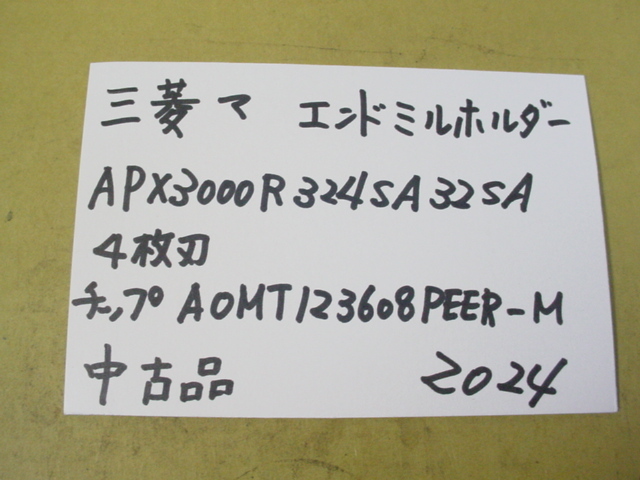 三菱マ エンドミルホルダー
APX3000R324SA32SA
4枚刃
チップ AOMT123608PEER-M
中古品 2024